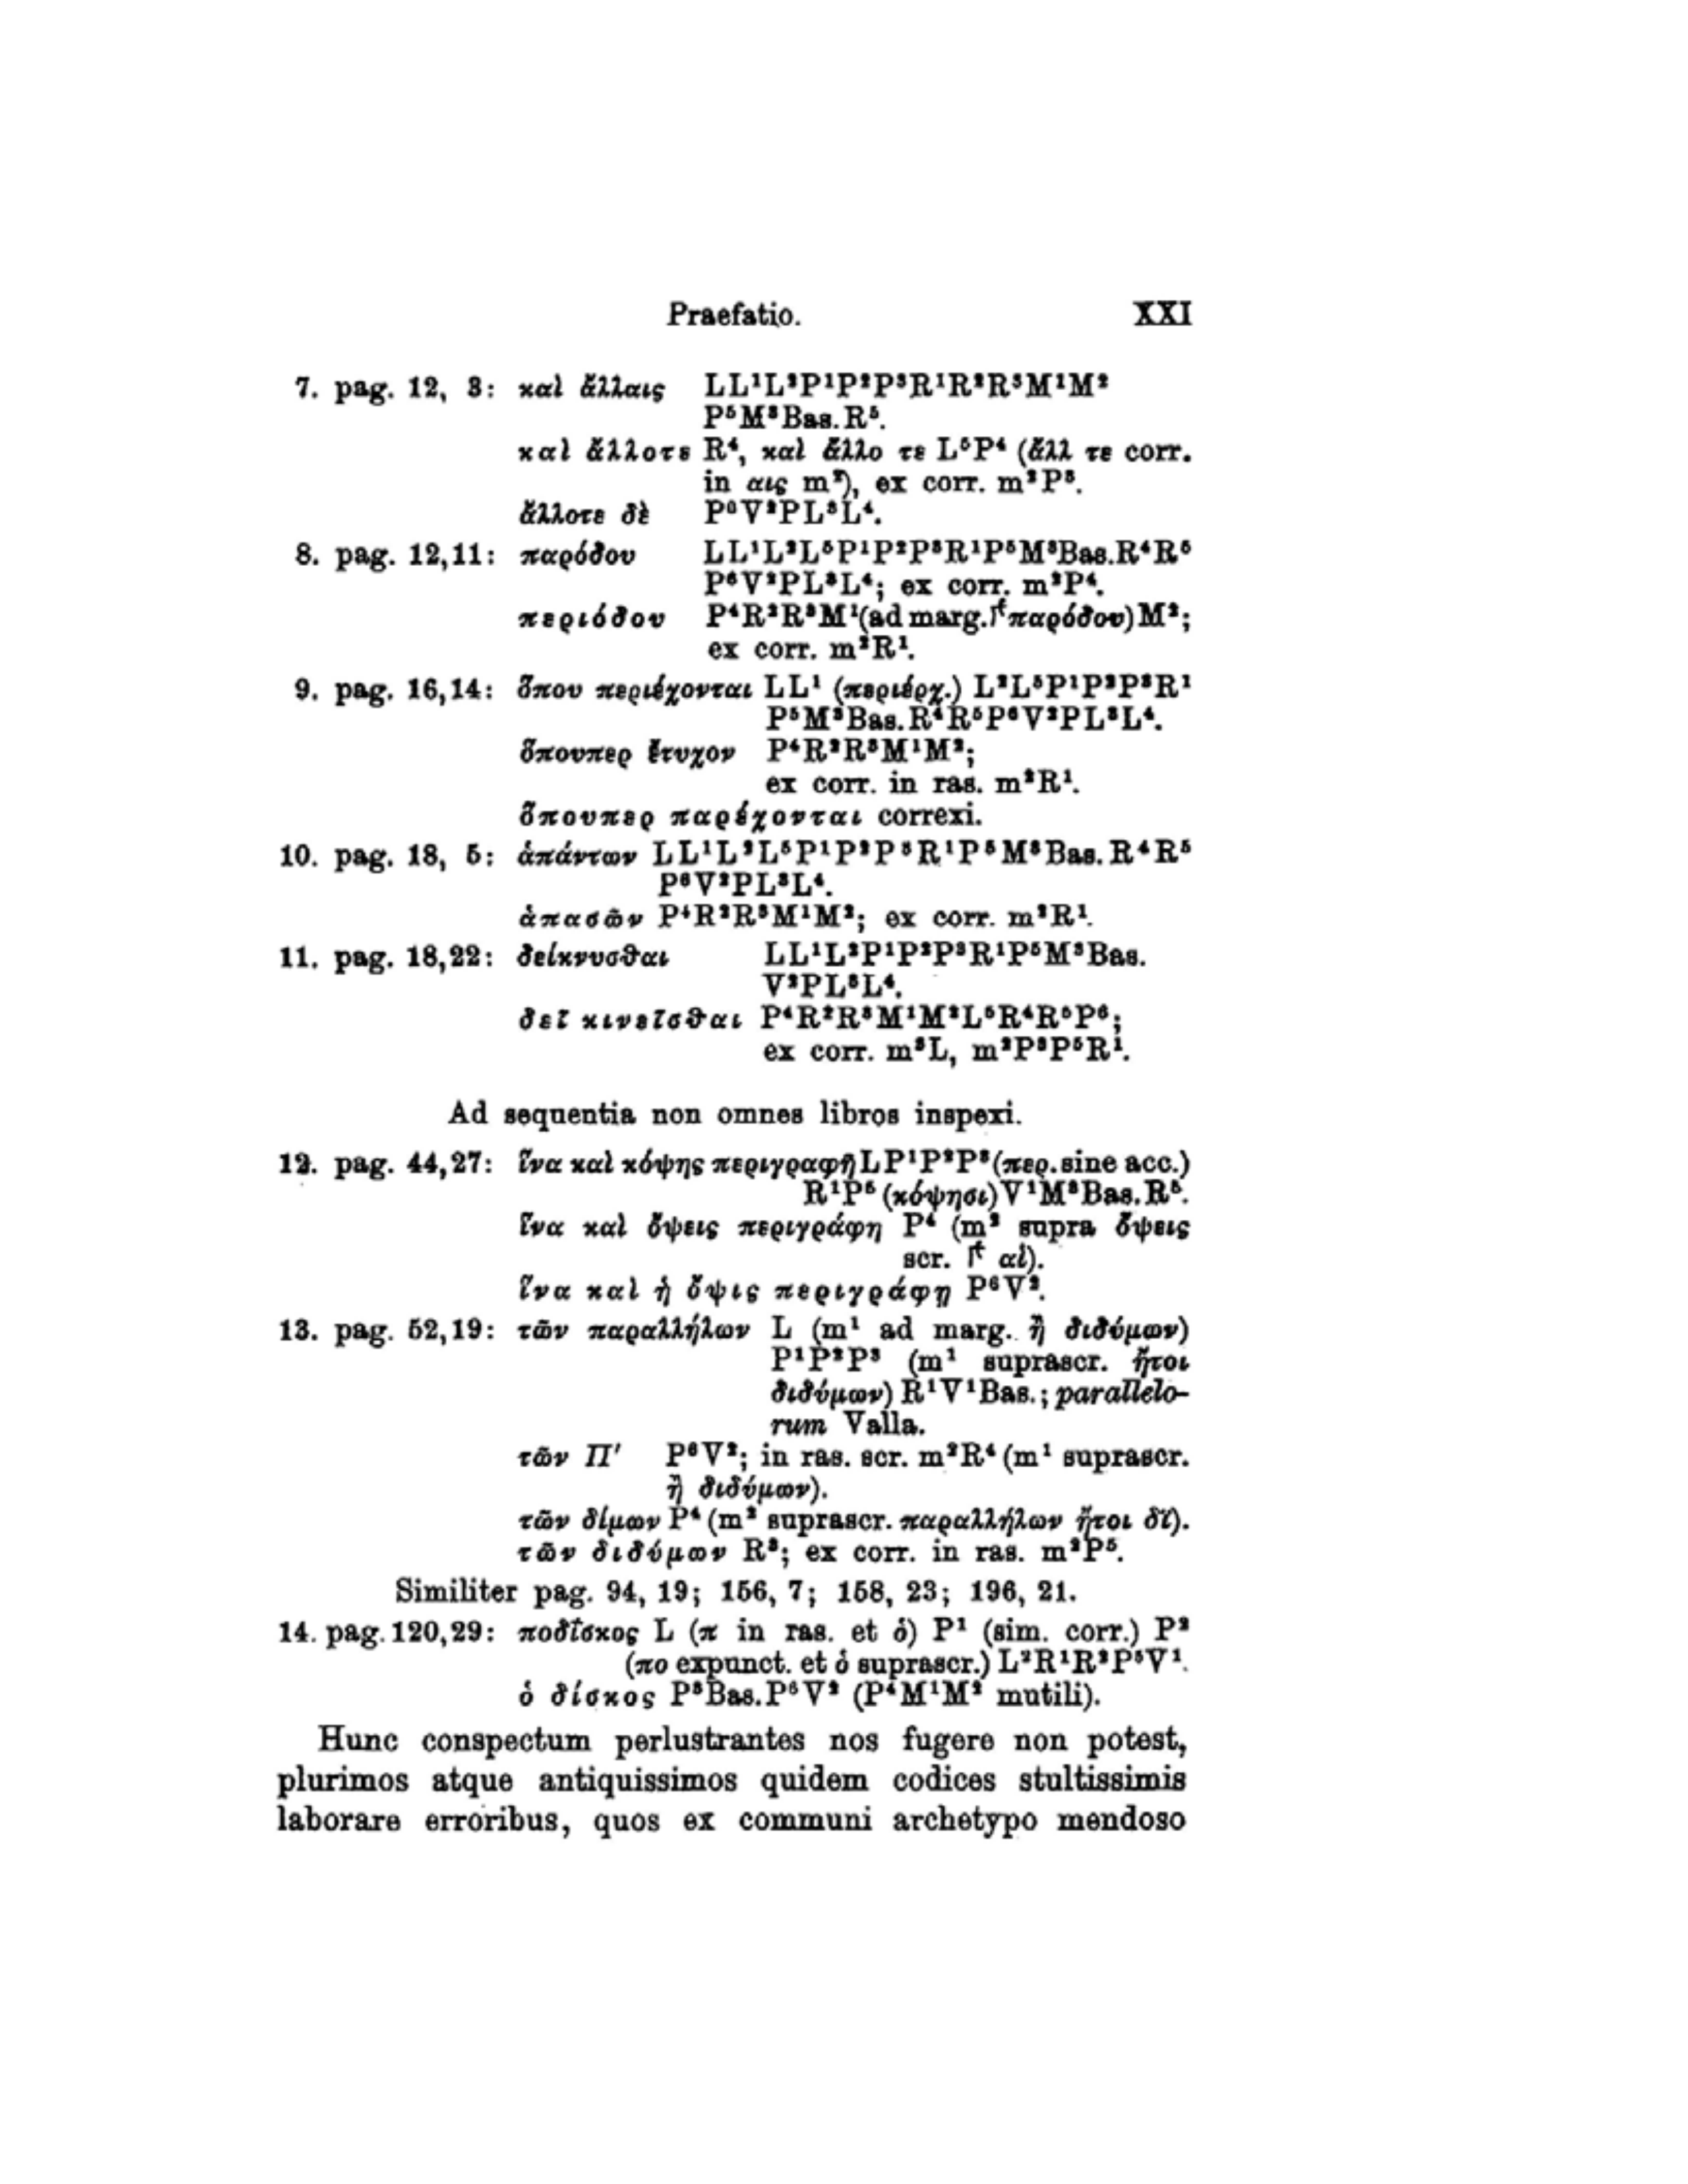 Praefatio. XXI
7. pag. 12, 3: καὶ ἄλλαις LL¹L²P¹P²P³R¹R²R³M¹M²
P⁵M³Bas.R⁵.
καὶ ἄλλοτε R⁴, καὶ ἄλλο τε L⁵P⁴ (ἄλλ τε corr.
in αις m²), ex corr. m²P³.
ἄλλοτε δὲ P⁶V²PL³L⁴.
8. pag. 12,11: παρόδου LL¹L²L⁵P¹P²P³R¹P⁵M³Bas.R⁴R⁵
P⁶V²PL³L⁴; ex corr. m²P⁴.
περιόδου P⁴R²R³M¹(ad marg. παρόδου)M²;
ex corr. m²R¹.
9. pag. 16,14: ὅπου περιέχονται LL¹ (περιέρχ.) L²L⁵P¹P²P³R¹
P⁵M³Bas.R⁴R⁵P⁶V²PL³L⁴.
ὅπουπερ ἔτυχον P⁴R²R³M¹M²;
ex corr. in ras. m²R¹.
ὅπουπερ παρέχονται correxi.
10. pag. 18, 5: ἁπάντων LL¹L²L⁵P¹P²P³R¹P⁵M³Bas.R⁴R⁵
P⁶V²PL³L⁴.
ἁπασῶν P⁴R²R³M¹M²; ex corr. m²R¹.
11. pag. 18,22: δείκνυσθαι LL¹L²P¹P²P³R¹P⁵M³Bas.
V²PL³L⁴.
δεῖ κινεῖσθαι P⁴R²R³M¹M²L⁵R⁴R⁵P⁶;
ex corr. m³L, m²P³P⁵R¹.
Ad sequentia non omnes libros inspexi.
12. pag. 44,27: ἵνα καὶ κόψης περιγραφῇ LP¹P²P³(περ. sine acc.)
R¹P⁵ (κόψησι)V¹M³Bas.R⁵.
ἵνα καὶ ὄψεις περιγράφη P⁴ (m² supra ὄψεις
scr. αἱ).
ἵνα καὶ ἡ ὄψις περιγράφῃ P⁶V².
13. pag. 52,19: τῶν παραλλήλων L (m¹ ad marg. ἢ διδύμων)
P¹P²P³ (m¹ suprascr. ἤτοι
διδύμων) R¹V¹Bas.; parallelo-
rum Valla.
τῶν Π′ P⁶V²; in ras. scr. m²R⁴ (m¹ suprascr.
ἢ διδύμων).
τῶν δίμων P⁴ (m² suprascr. παραλλήλων ἤτοι δῒ).
τῶν διδύμων R³; ex corr. in ras. m²P⁵.
Similiter pag. 94, 19; 156, 7; 158, 23; 196, 21.
14. pag. 120,29: ποδΐσκος L (π in ras. et ὁ) P¹ (sim. corr.) P²
(πο expunct. et ὁ suprascr.) L²R¹R²P⁵V¹.
ὁ δίσκος P³Bas.P⁶V² (P⁴M¹M² mutili).
Hunc conspectum perlustrantes nos fugere non potest,
plurimos atque antiquissimos quidem codices stultissimis
laborare erroribus, quos ex communi archetypo mendoso